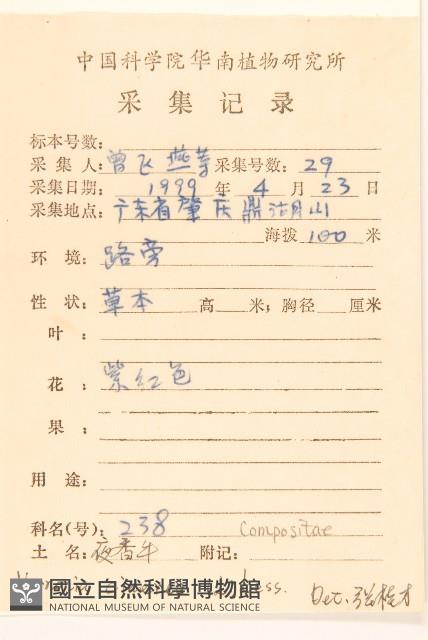 中国科学院华南植物研究所
采集记录
标本号数:
采集人: 曾飞燕等 采集号数: 29
采集日期: 1999 年 4 月 23 日
采集地点: 广东省肇庆鼎湖山
海拨 100 米
环境: 路旁
性状: 草本 高 米; 胸径 厘米
叶:
花: 紫红色
果:
用途:
科名(号): 238 Compositae
土名: 夜香牛 附记:
less. Det.
國立自然科學博物館
NATIONAL MUSEUM OF NATURAL SCIENCE